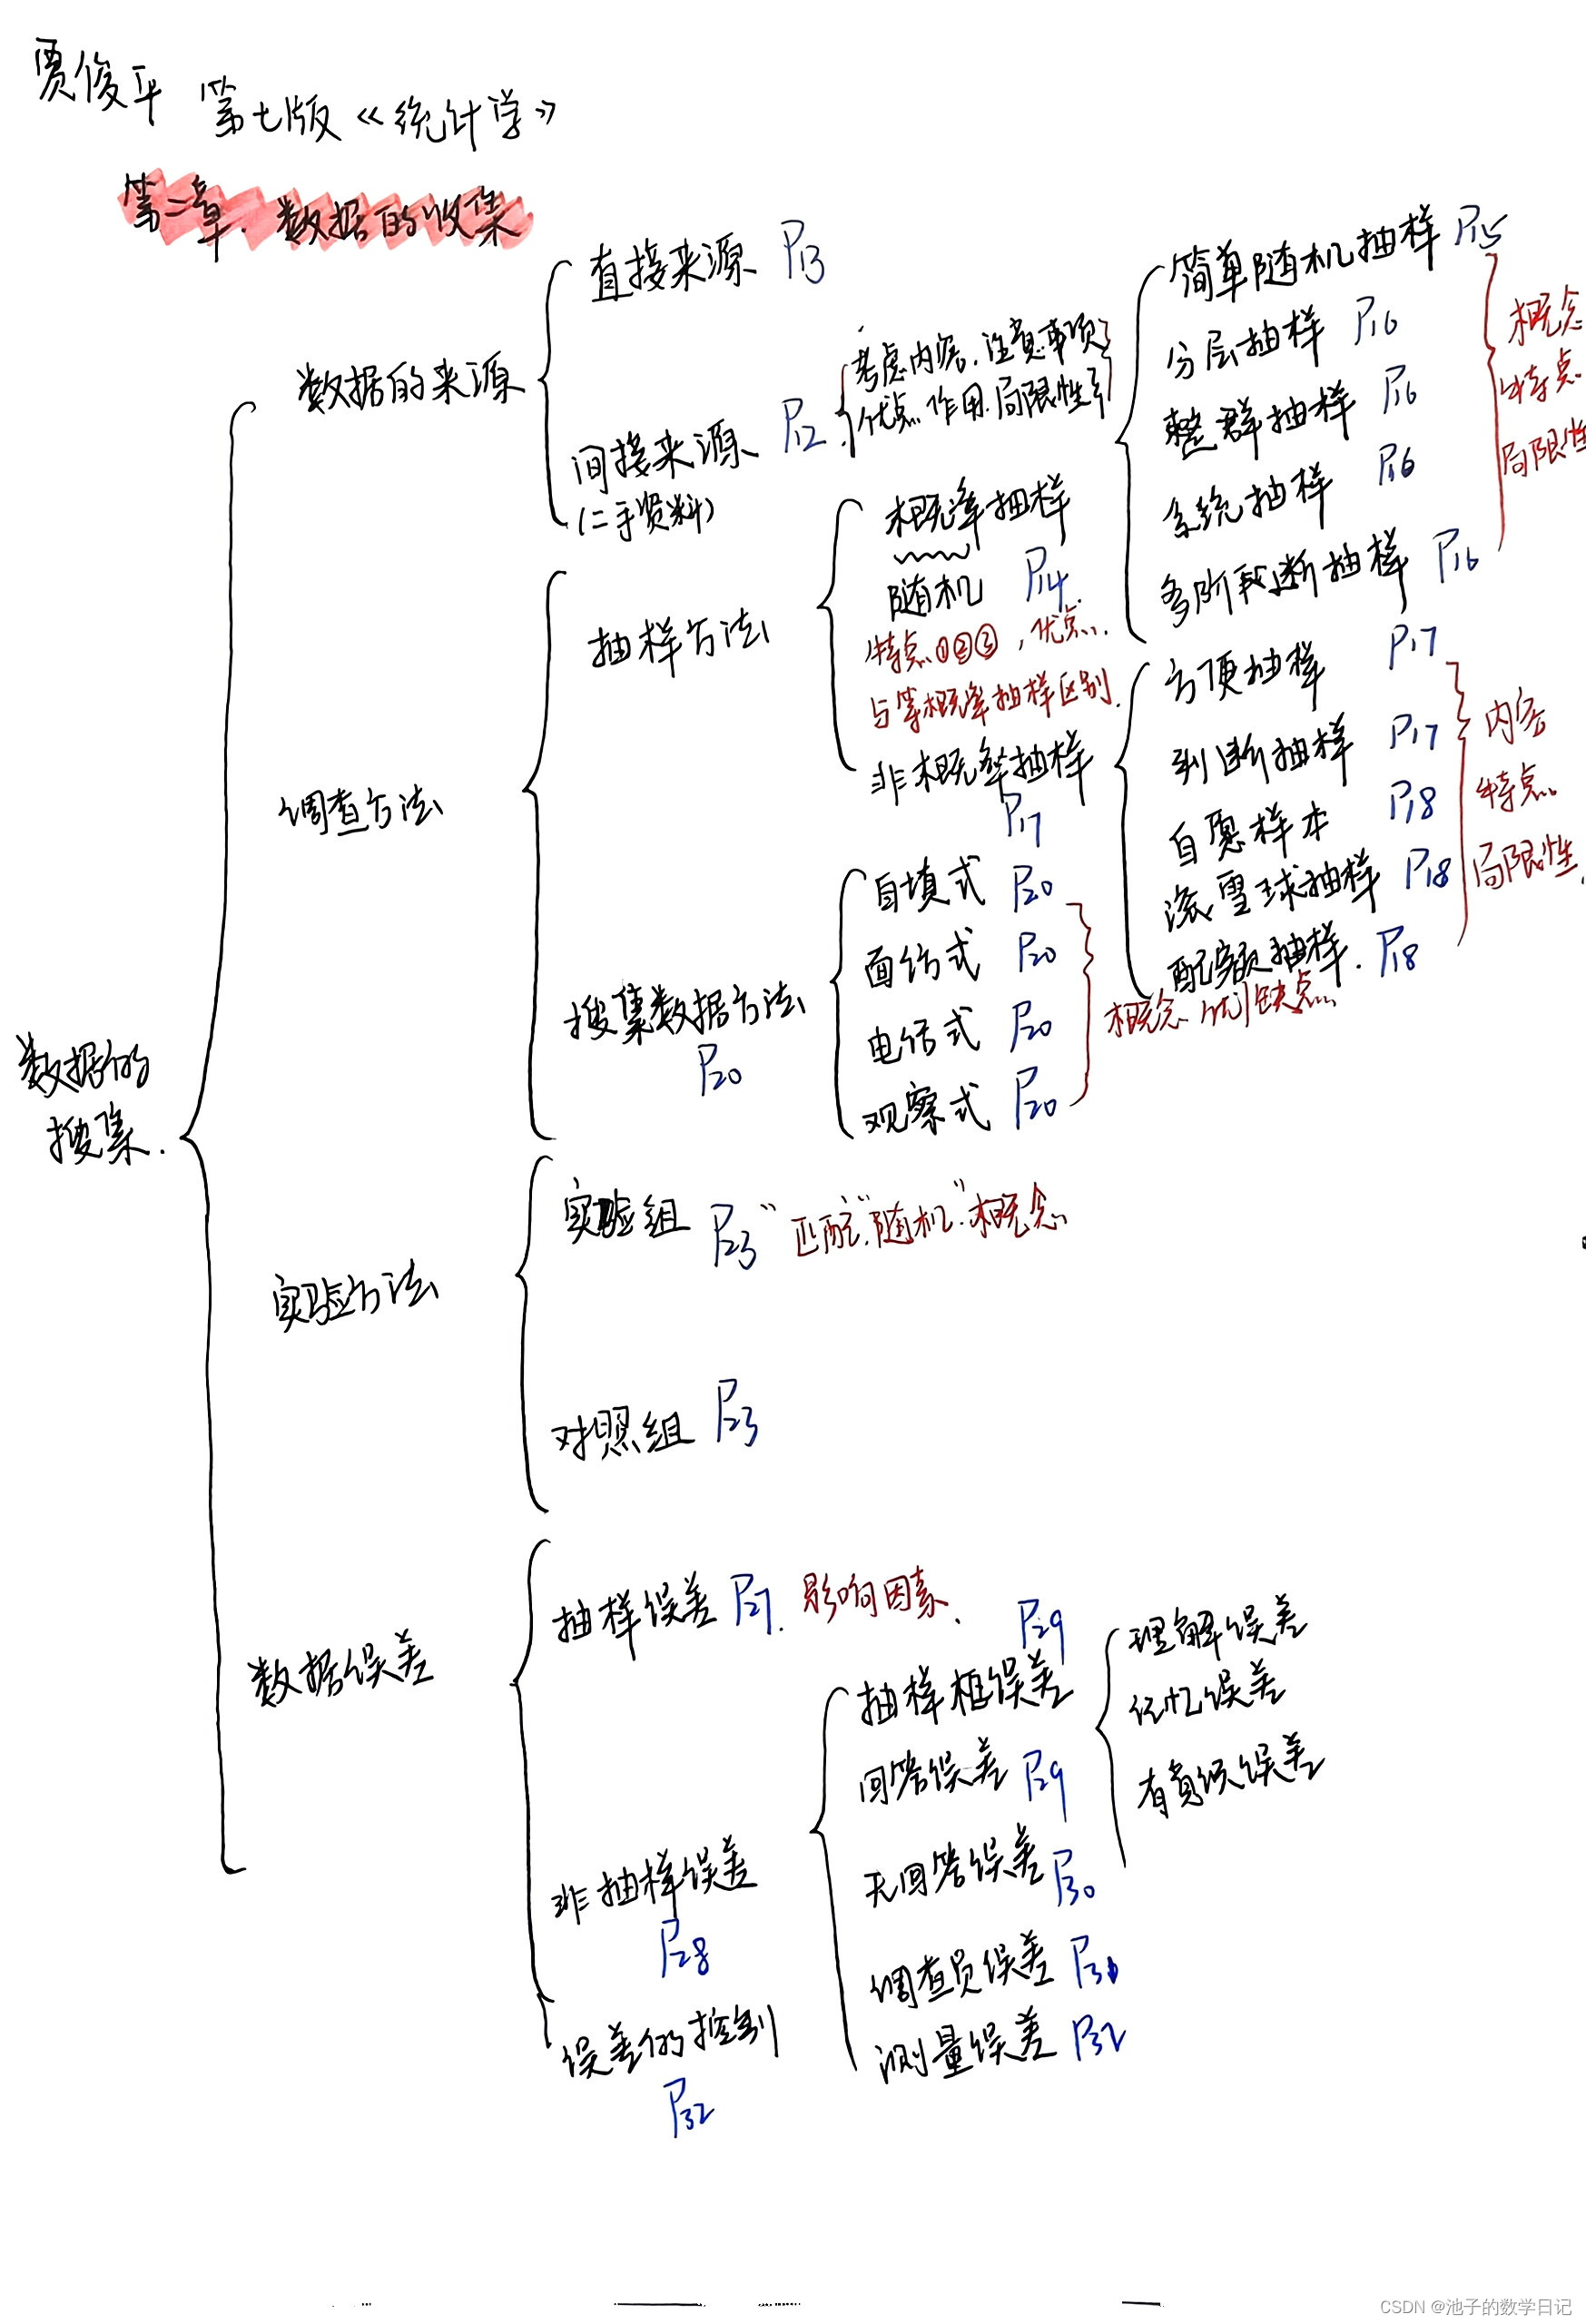 贾俊平 第七版《统计学》
第二章. 数据的收集
数据的搜集.
数据的来源
直接来源 P13
间接来源 P12
(二手资料)
考虑内容. 注意事项
优点. 作用. 局限性
调查方法
抽样方法
概率抽样
随机 P14.
特点①②③, 优点.
与等概率抽样区别.
简单随机抽样 P15
分层抽样 P16
整群抽样 P16
系统抽样 P16
多阶段抽样 P16
概念
特点
局限性
非概率抽样
P17
方便抽样 P17
判断抽样 P17
自愿样本 P18
滚雪球抽样 P18
配额抽样. P18
内容
特点
局限性.
搜集数据方法
P20
自填式 P20
面访式 P20
电话式 P20
观察式 P20
概念 优缺点
实验方法
实验组 P23 "匹配""随机"概念
对照组 P23
数据误差
抽样误差 P27. 影响因素.
非抽样误差
P28
抽样框误差 P29
回答误差 P29
理解误差
记忆误差
有意识误差
无回答误差 P30
调查员误差
测量误差 P32
误差的控制
P32
CSDN @池子的数学日记